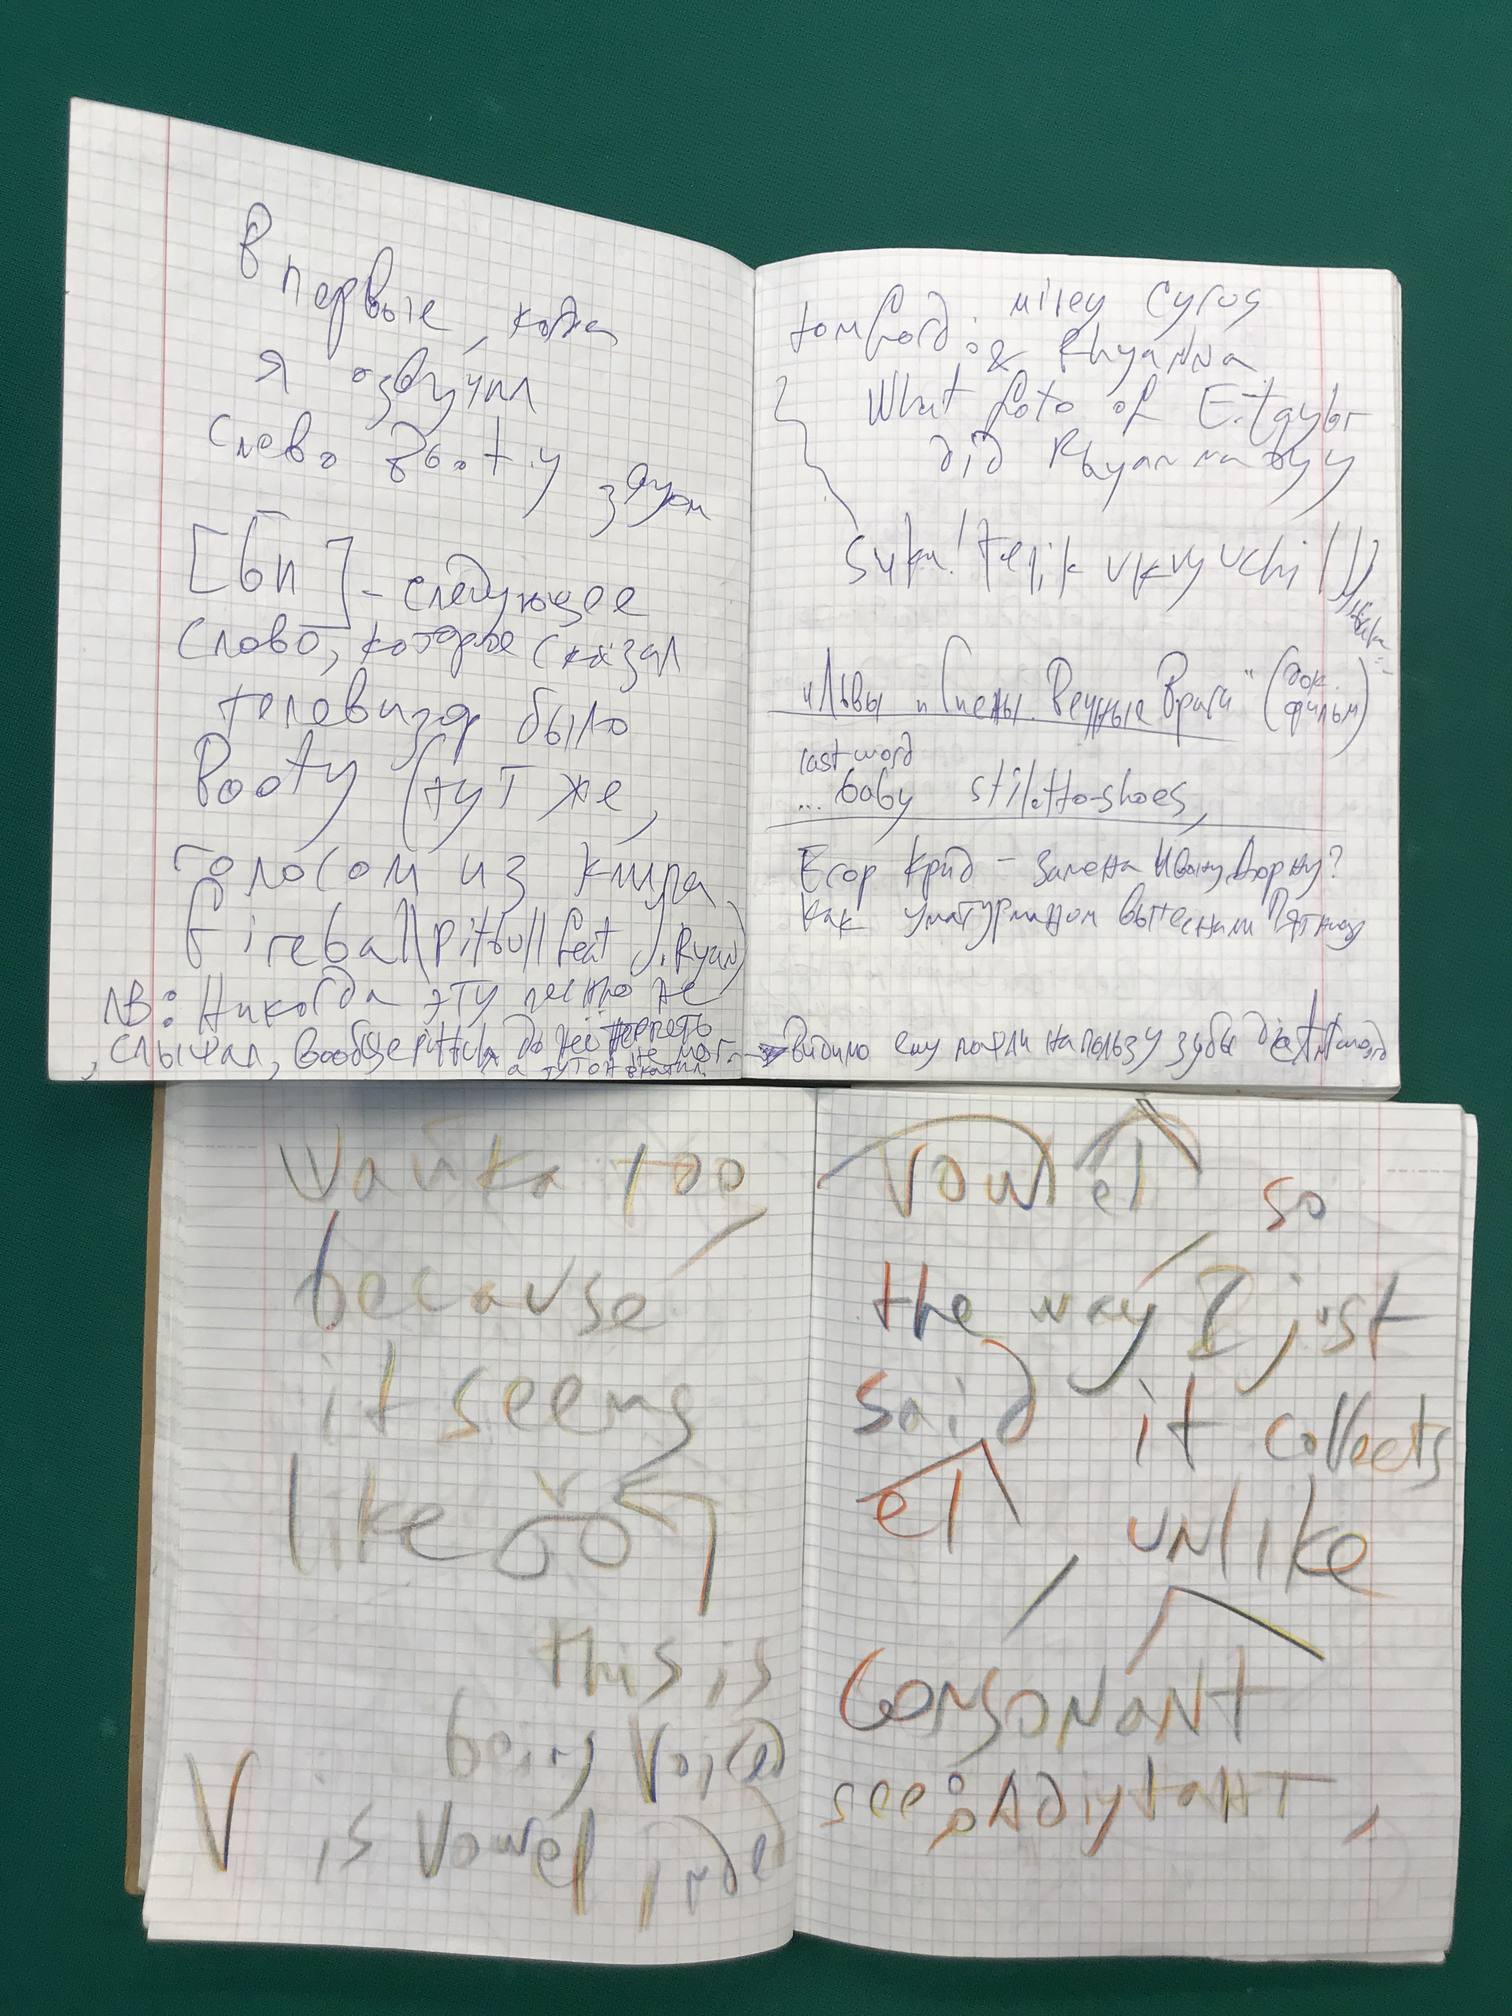 Впервые, когда
я озвучил
слово booty звуком
[бп] - следующее
слово, которое сказал
телевизор было
Booty (тут же,
голосом из клипа
Fireball Pitbull feat J. Ryan)
NB: Никогда эту песню не
слышал, вообще до неё терпеть
не мог
а тут он вкатил
miley Cyrus
tomford: & Rhyanna
What foto of E.taylor
did Rhyanna buy
suka! telik vkvyuchi !)))
"Львы и Гиены. Вечные Враги" (док. фильм)
last word
... baby stiletto-shoes,
Егор Крид - замена Ивану Дорну?
как Уматурманом вытеснили
Видимо ему пошли на пользу зубы
Wайка too,
because
it seems
like
this is
being Voiced
V is Vowel inded
Vowel el so
the way I just
said it collects
el, unlike
Consonant
see: Adiytant,